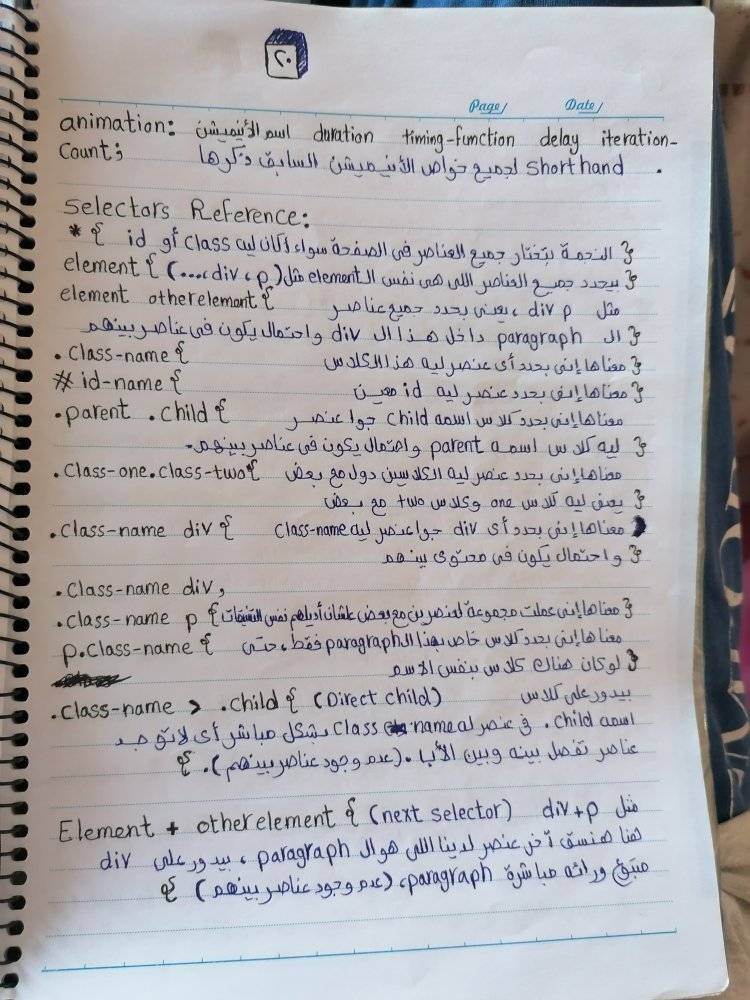 ٢٠
Page/ Date/
animation: اسم الأنيميشن duration timing-function delay iteration-
Count; shorthand لجميع خواص الأنيميشن السابق ذكرها .
Selectors Reference:
* { النجمة بتختار جميع العناصر في الصفحة سواء أكان ليه class أو id }
element { بيحدد جميع العناصر اللي هي نفس الـ element مثل (div ، p ،....) }
element otherelement { مثل div p ، يعني يحدد جميع عناصر
الـ paragraph داخل هذا الـ div واحتمال يكون في عناصر بينهم }
.class-name { معناها إني بحدد أي عنصر ليه هذا الكلاس }
# id-name { معناها إني بحدد عنصر ليه id معين }
.parent .child { معناها إني بحدد كلاس اسمه child جوا عنصر
ليه كلاس اسمه parent واحتمال يكون في عناصر بينهم. }
.Class-one.class-two { معناها إني بحدد عنصر ليه الكلاسين دول مع بعض
يعني ليه كلاس one وكلاس two مع بعض }
.class-name div { معناها إني بحدد أي div جوا عنصر ليه class-name
واحتمال يكون في محتوى بينهم }
.class-name div,
.class-name p { معناها إني عملت مجموعة لعنصرين مع بعض علشان أديلهم نفس التنسيقات }
p.class-name { معناها إني بحدد كلاس خاص بهذا الـ paragraph فقط ، حتى
لو كان هناك كلاس بنفس الاسم }
.class-name > .child { (Direct child) بيدور على كلاس
اسمه child . في عنصر له class name بشكل مباشر أي لا توجد
عناصر تفصل بينه وبين الأب . (عدم وجود عناصر بينهم). }
Element + otherelement { (next selector) مثل div+p
هنا هنسق آخر عنصر لدينا اللي هو الـ paragraph ، بيدور على div
ورائه مباشرة paragraph، (عدم وجود عناصر بينهم) }